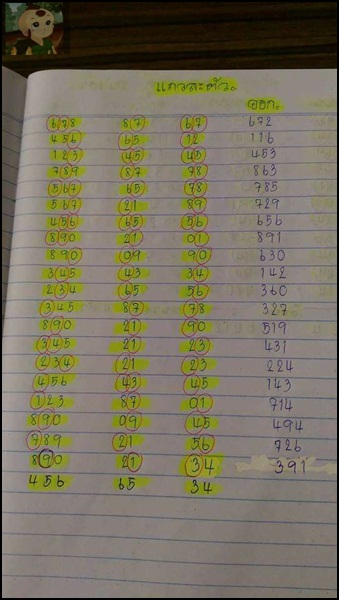 แถวละตัว
ออก
678 87 67 672
456 65 12 116
123 45 45 453
789 87 78 863
567 65 78 785
567 21 89 729
456 65 56 656
890 21 01 891
890 09 90 630
345 43 34 142
234 65 56 360
345 87 78 327
890 21 90 519
345 21 23 431
234 21 23 224
456 43 45 143
123 87 01 714
890 09 45 494
789 21 56 726
890 21 34 391
456 65 34